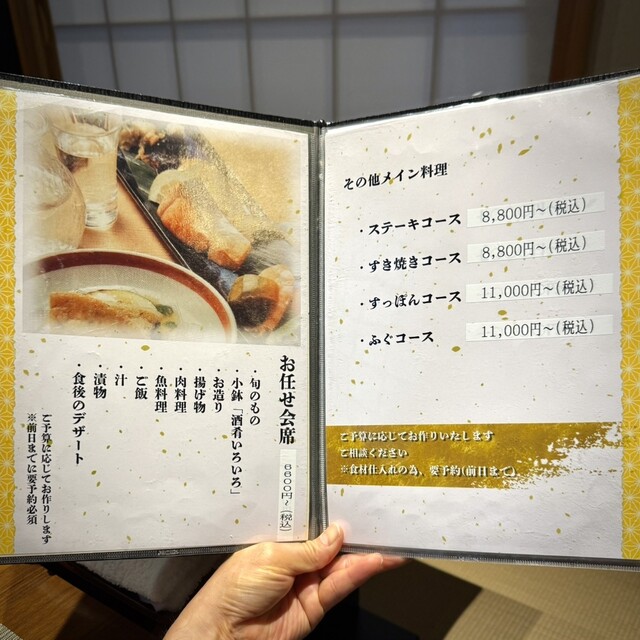 お任せ会席
6600円~(税込)
・旬のもの
・小鉢「酒肴いろいろ」
・お造り
・揚げ物
・肉料理
・魚料理
・ご飯
・汁
・漬物
・食後のデザート
ご予算に応じてお作りします
※前日までに要予約必須
その他メイン料理
・ステーキコース 8,800円~(税込)
・すき焼きコース 8,800円~(税込)
・すっぽんコース 11,000円~(税込)
・ふぐコース 11,000円~(税込)
ご予算に応じてお作りいたします
ご相談ください
※食材仕入れの為、要予約(前日まで)